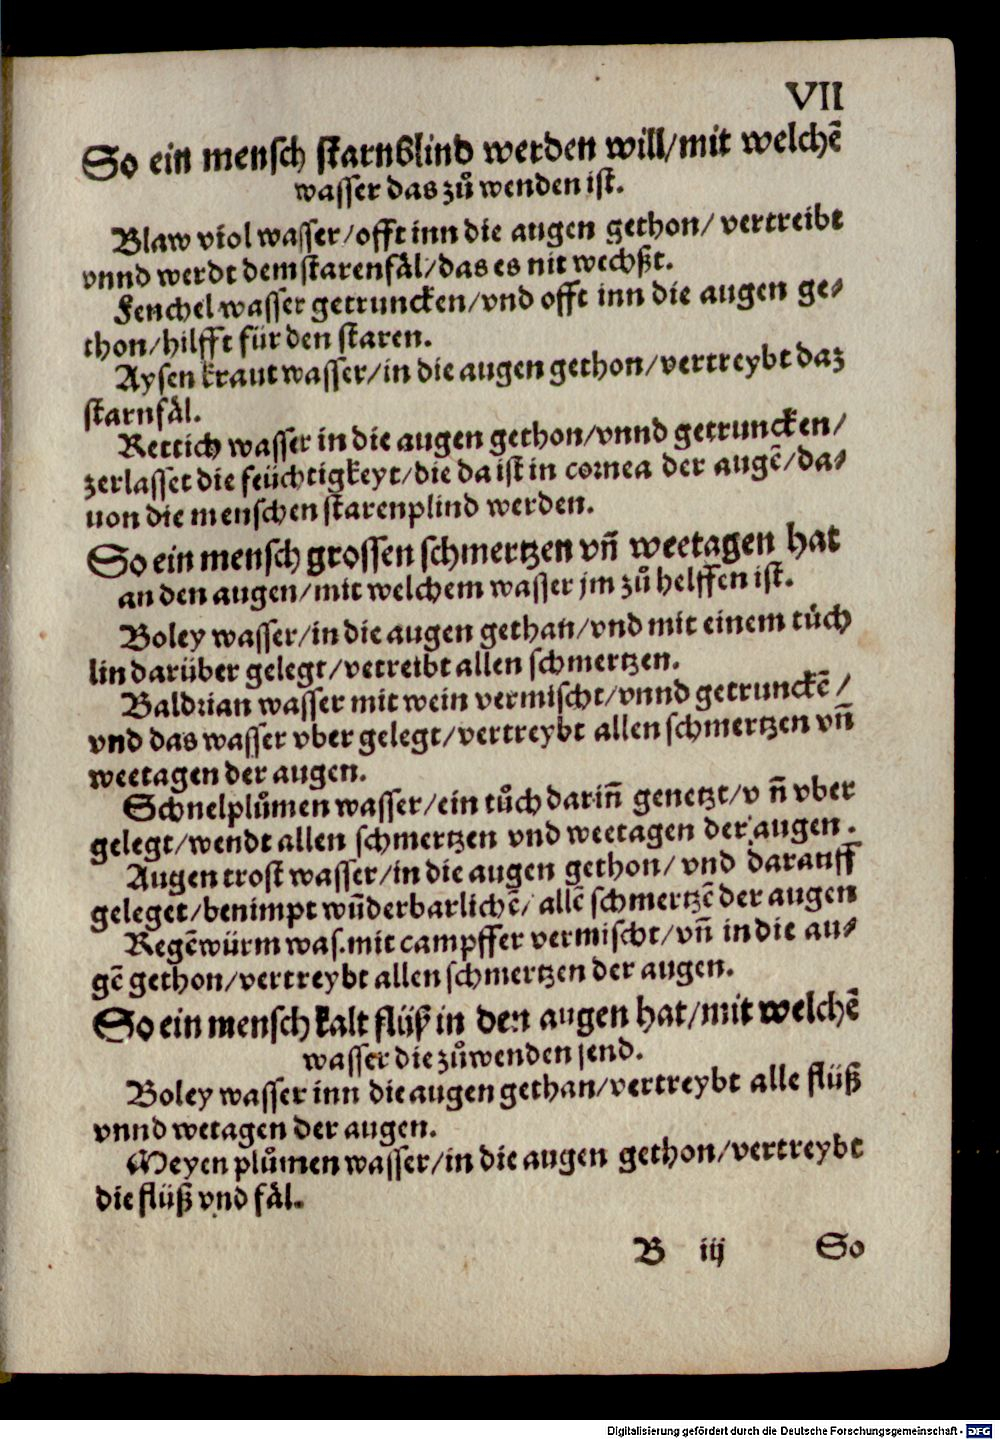 VII
So ein mensch starnblind werden will/mit welchē
wasser das zů wenden ist.
Blaw viol wasser/offt inn die augen gethon/ vertreibt
vnnd werdt dem starenfäl/das es nit wechßt.
Fenchel wasser getruncken/vnd offt inn die augen ge⸗
thon/hilfft für den staren.
Aysen kraut wasser/in die augen gethon/vertreybt daz
starnfäl.
Rettich wasser in die augen gethon/vnnd getruncken/
zerlasset die feüchtigkeyt/die da ist in cornea der augē/da⸗
uon die menschen starenplind werden.
So ein mensch grossen schmertzen vñ weetagen hat
an den augen/mit welchem wasser jm zů helffen ist.
Boley wasser/in die augen gethan/vnd mit einem tůch
lin darüber gelegt/vetreibt allen schmertzen.
Baldrian wasser mit wein vermischt/vnnd getrunckē/
vnd das wasser vber gelegt/vertreybt allen schmertzen vñ
weetagen der augen.
Schnelplůmen wasser/ein tůch dariñ genetzt/v ñ vber
gelegt/wendt allen schmertzen vnd weetagen der augen.
Augen trost wasser/in die augen gethon/ vnd darauff
geleget/benimpt wūderbarlichē/ allē schmertzē der augen
Regēwürm was.mit campffer vermischt/vñ in die au⸗
gē gethon/vertreybt allen schmertzen der augen.
So ein mensch kalt flüß in den augen hat/mit welchē
wasser die zůwenden send.
Boley wasser inn die augen gethan/vertreybt alle flüß
vnnd wetagen der augen.
Meyen plůmen wasser/in die augen gethon/vertreybt
die flüß vnd fäl.
B iij So
Digitalisierung gefördert durch die Deutsche Forschungsgemeinschaft - DFG